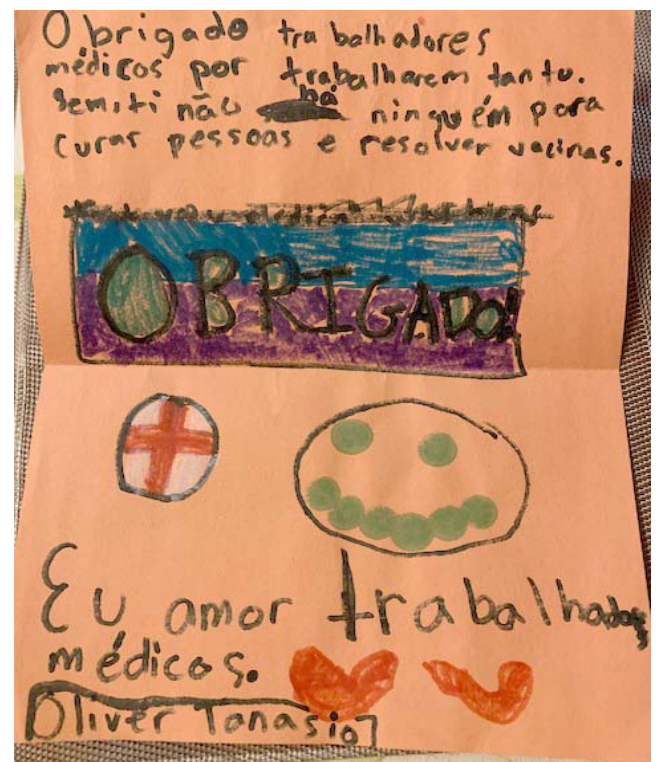 Obrigado trabalhadores
médicos por trabalharem tanto.
Semiti não há ninguém para
curar pessoas e resolver vacinas.
OBRIGADO!
Eu amor trabalhadores
médicos.
Oliver Tanasio